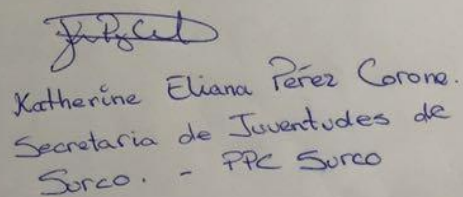 Katherine Eliana Pérez Corone.
Secretaria de Juventudes de
Surco. - PPC Surco